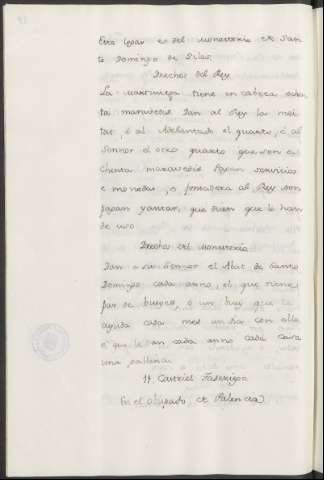 Este logar es del monesterio de San
to Domingo de Silos.
Derechos del Rey
La martiniega tiene en cabeça ochen
ta maravedis dan al Rey la mei
tat, e al Adelantado el quarto, e al
Sennor el otro quarto que son o
chenta maravedis Pagan servicios
e monedas, e fonsadera al Rey non
pagan yantar, que disen que lo han
de uso
Derechos del Monesterio
Dan a su Sennor el Abat de Santo
Domingo cada anno, el que tiene
par de bueyes, o un buy que le
ayuda cada mes un dia con ello
e que le dan cada anno cada casa
una gallina.
Castriel Faserigo
En el obispado de Palencia